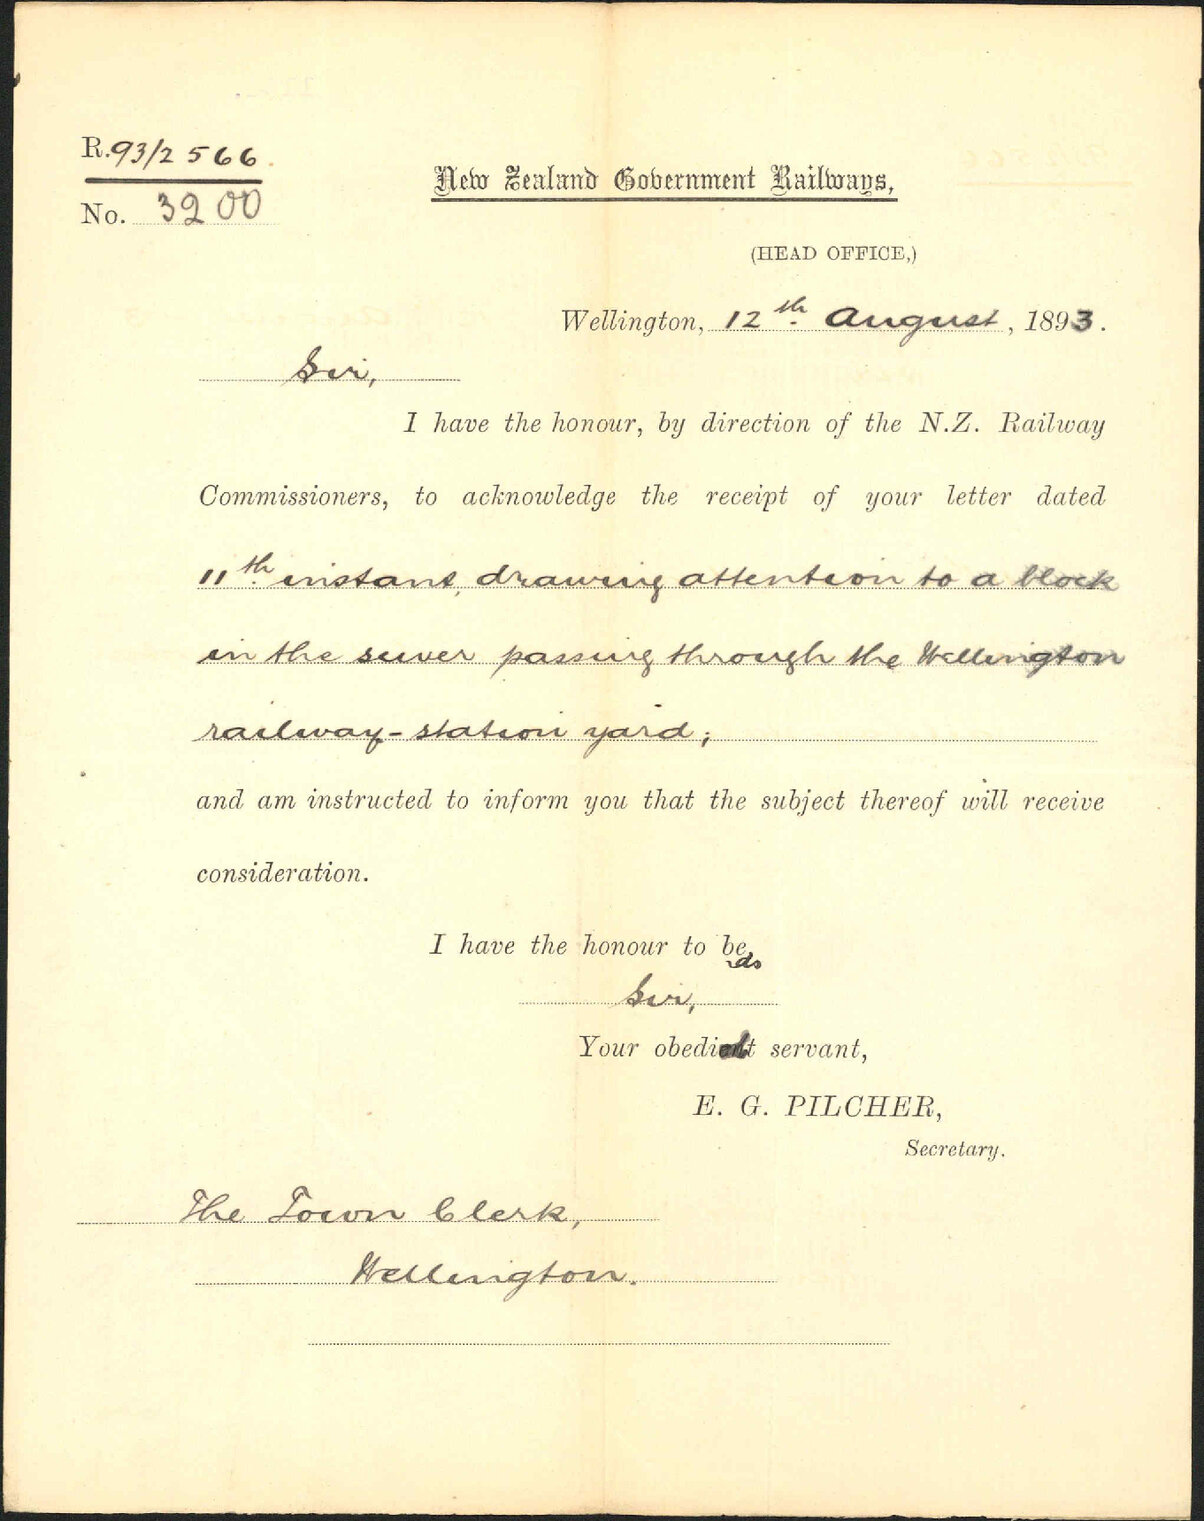 R.93/2566
No. 3200
New Zealand Government Railways,
(HEAD OFFICE,)
Wellington, 12th. August, 1893.
Sir,
I have the honour, by direction of the N.Z. Railway
Commissioners, to acknowledge the receipt of your letter dated
11th. instant, drawing attention to a block
in the sewer passing through the Wellington
railway-station yard;
and am instructed to inform you that the subject thereof will receive
consideration.
I have the honour to be,
Sir,
Your obedient servant,
E. G. PILCHER,
Secretary.
The Town Clerk,
Wellington.